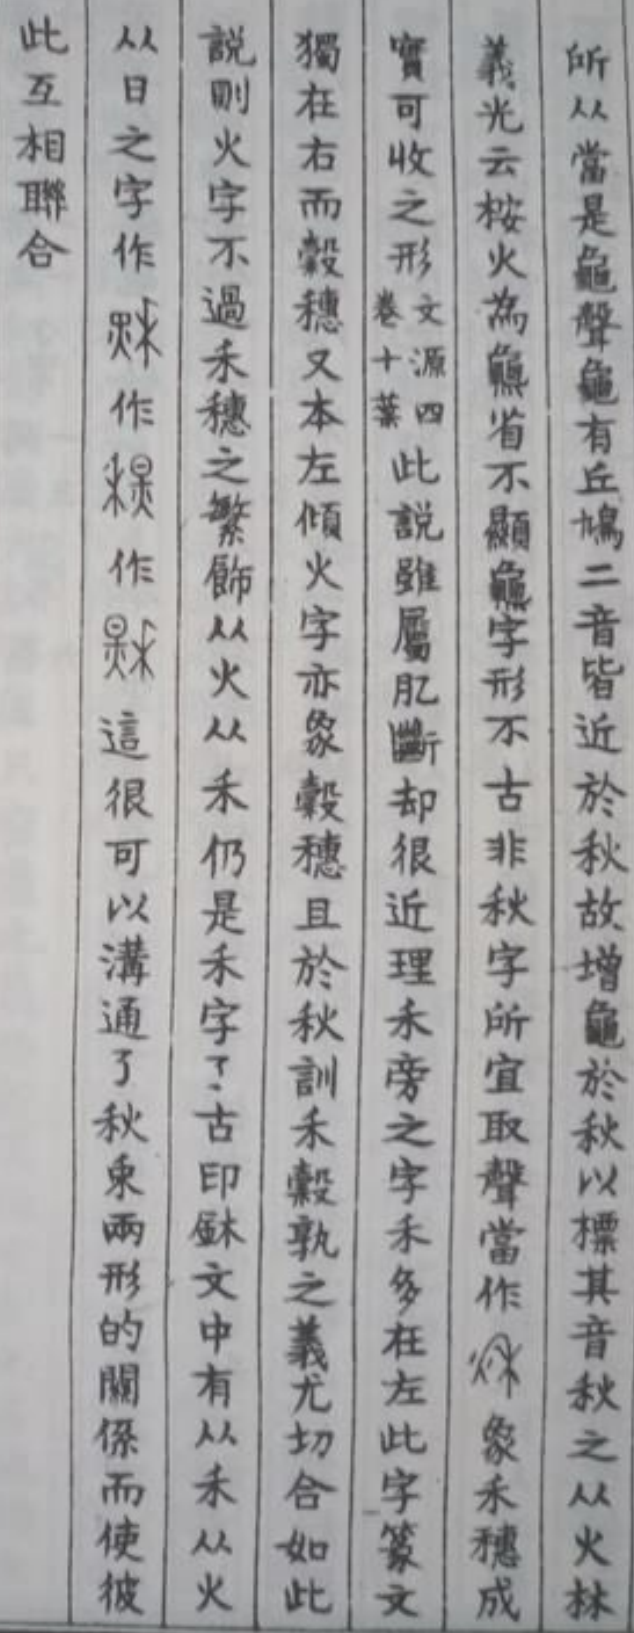 所从當是龜聲龜有丘鳩二音皆近於秋故增龜於秋以標其音秋之从火林
義光云桉火為龝省不顯龝字形不古非秋字所宜取聲當作象禾穗成
實可收之形文源四卷十葉此說雖屬肊斷却很近理禾旁之字禾多在左此字篆文
獨在右而穀穗又本左傾火字亦象穀穗且於秋訓禾穀孰之義尤切合如此
説則火字不過禾穗之繁飾从火从禾仍是禾字了古印鉥文中有从禾从火
从日之字作作作這很可以溝通了秋東兩形的關係而使彼
此互相聯合